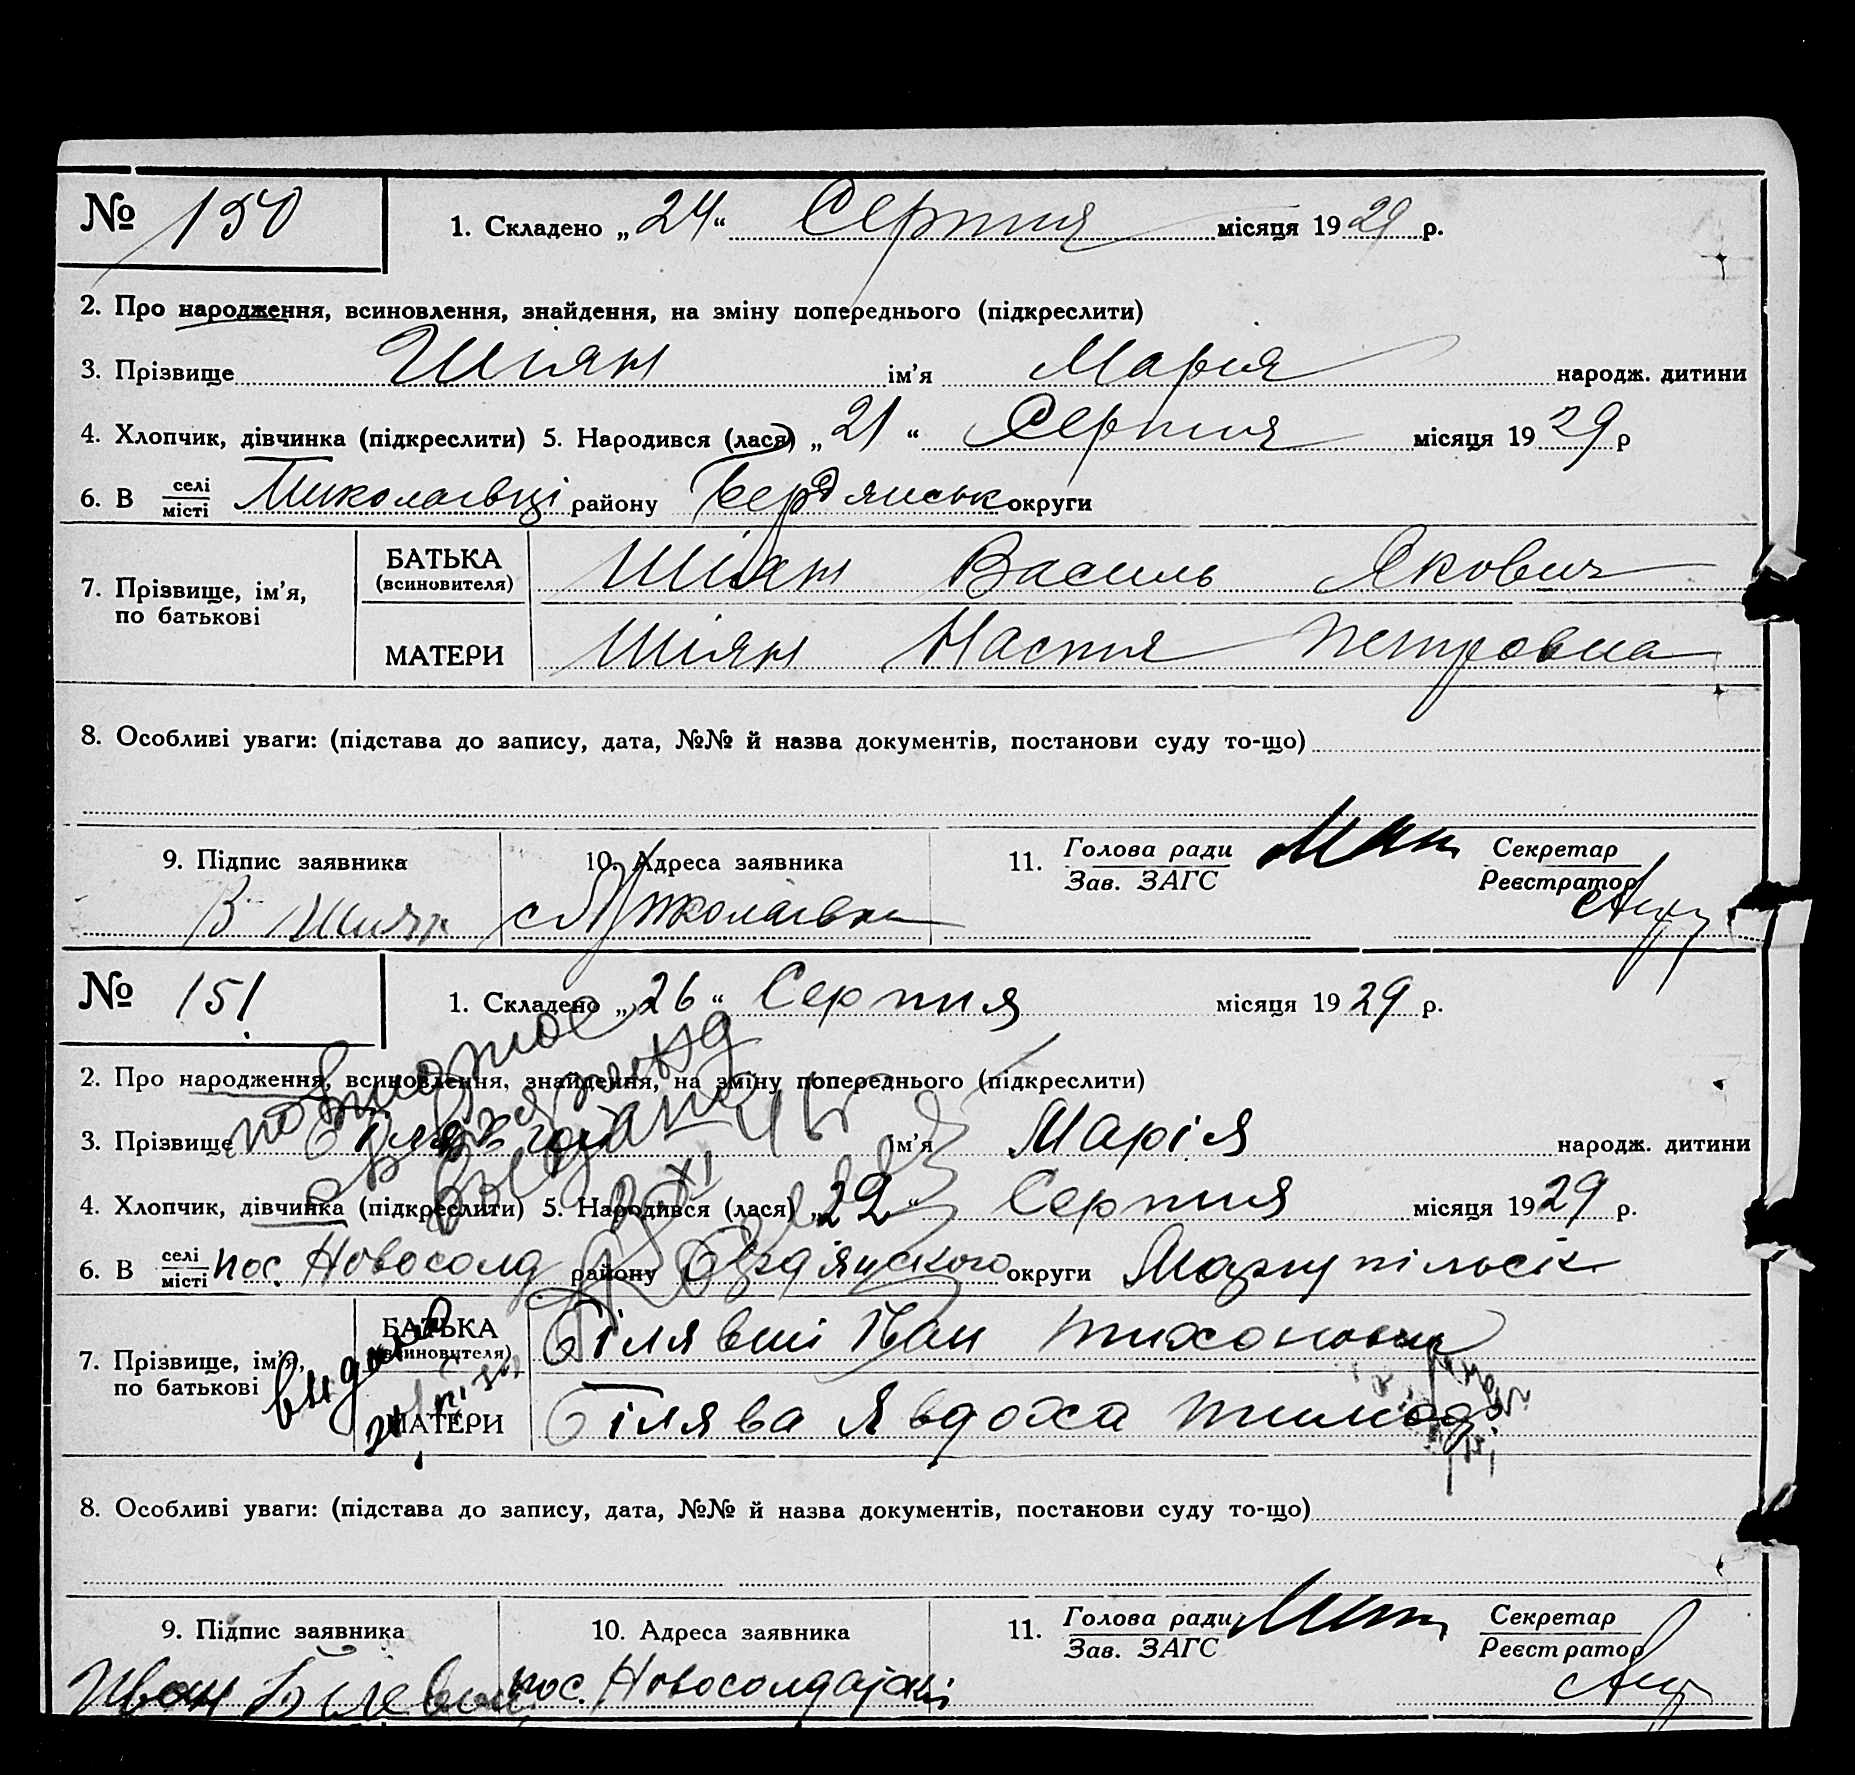 № 150
1. Складено „24“ Серпня місяця 1929 р.
2. Про народження, всиновлення, знайдення, на зміну попереднього (підкреслити)
3. Прізвище Шіян ім’я Марія народж. дитини
4. Хлопчик, дівчинка (підкреслити) 5. Народився (лася) „21“ Серпня місяця 1929 р
6. В селі місті Миколаівці району Бердянськ округи
7. Прізвище, ім’я, по батькові
БАТЬКА (всиновителя) Шіян Василь Якович
МАТЕРИ Шіян Настя Петровна
8. Особливі уваги: (підстава до запису, дата, №№ й назва документів, постанови суду то-що)
9. Підпис заявника 10. Адреса заявника 11. Голова ради Секретар
Зав. ЗАГС Реєстратор
В Шиян с Миколаівка
№ 151
1. Складено „26“ Серпня місяця 1929 р.
2. Про народження, всиновлення, знайдення, на зміну попереднього (підкреслити)
повторное
3. Прізвище ім’я Марія народж. дитини
4. Хлопчик, дівчинка (підкреслити) 5. Народився (лася) „22“ Серпня місяця 1929 р.
6. В селі місті пос. Новосолд району Бердянского округи Маріупільск
7. Прізвище, ім’я, по батькові
БАТЬКА (всиновителя) Білявий Іван Тихонович
МАТЕРИ Білява Явдоха
8. Особливі уваги: (підстава до запису, дата, №№ й назва документів, постанови суду то-що)
9. Підпис заявника 10. Адреса заявника 11. Голова ради Секретар
Зав. ЗАГС Реєстратор
Иван пос. Новосолдатскі